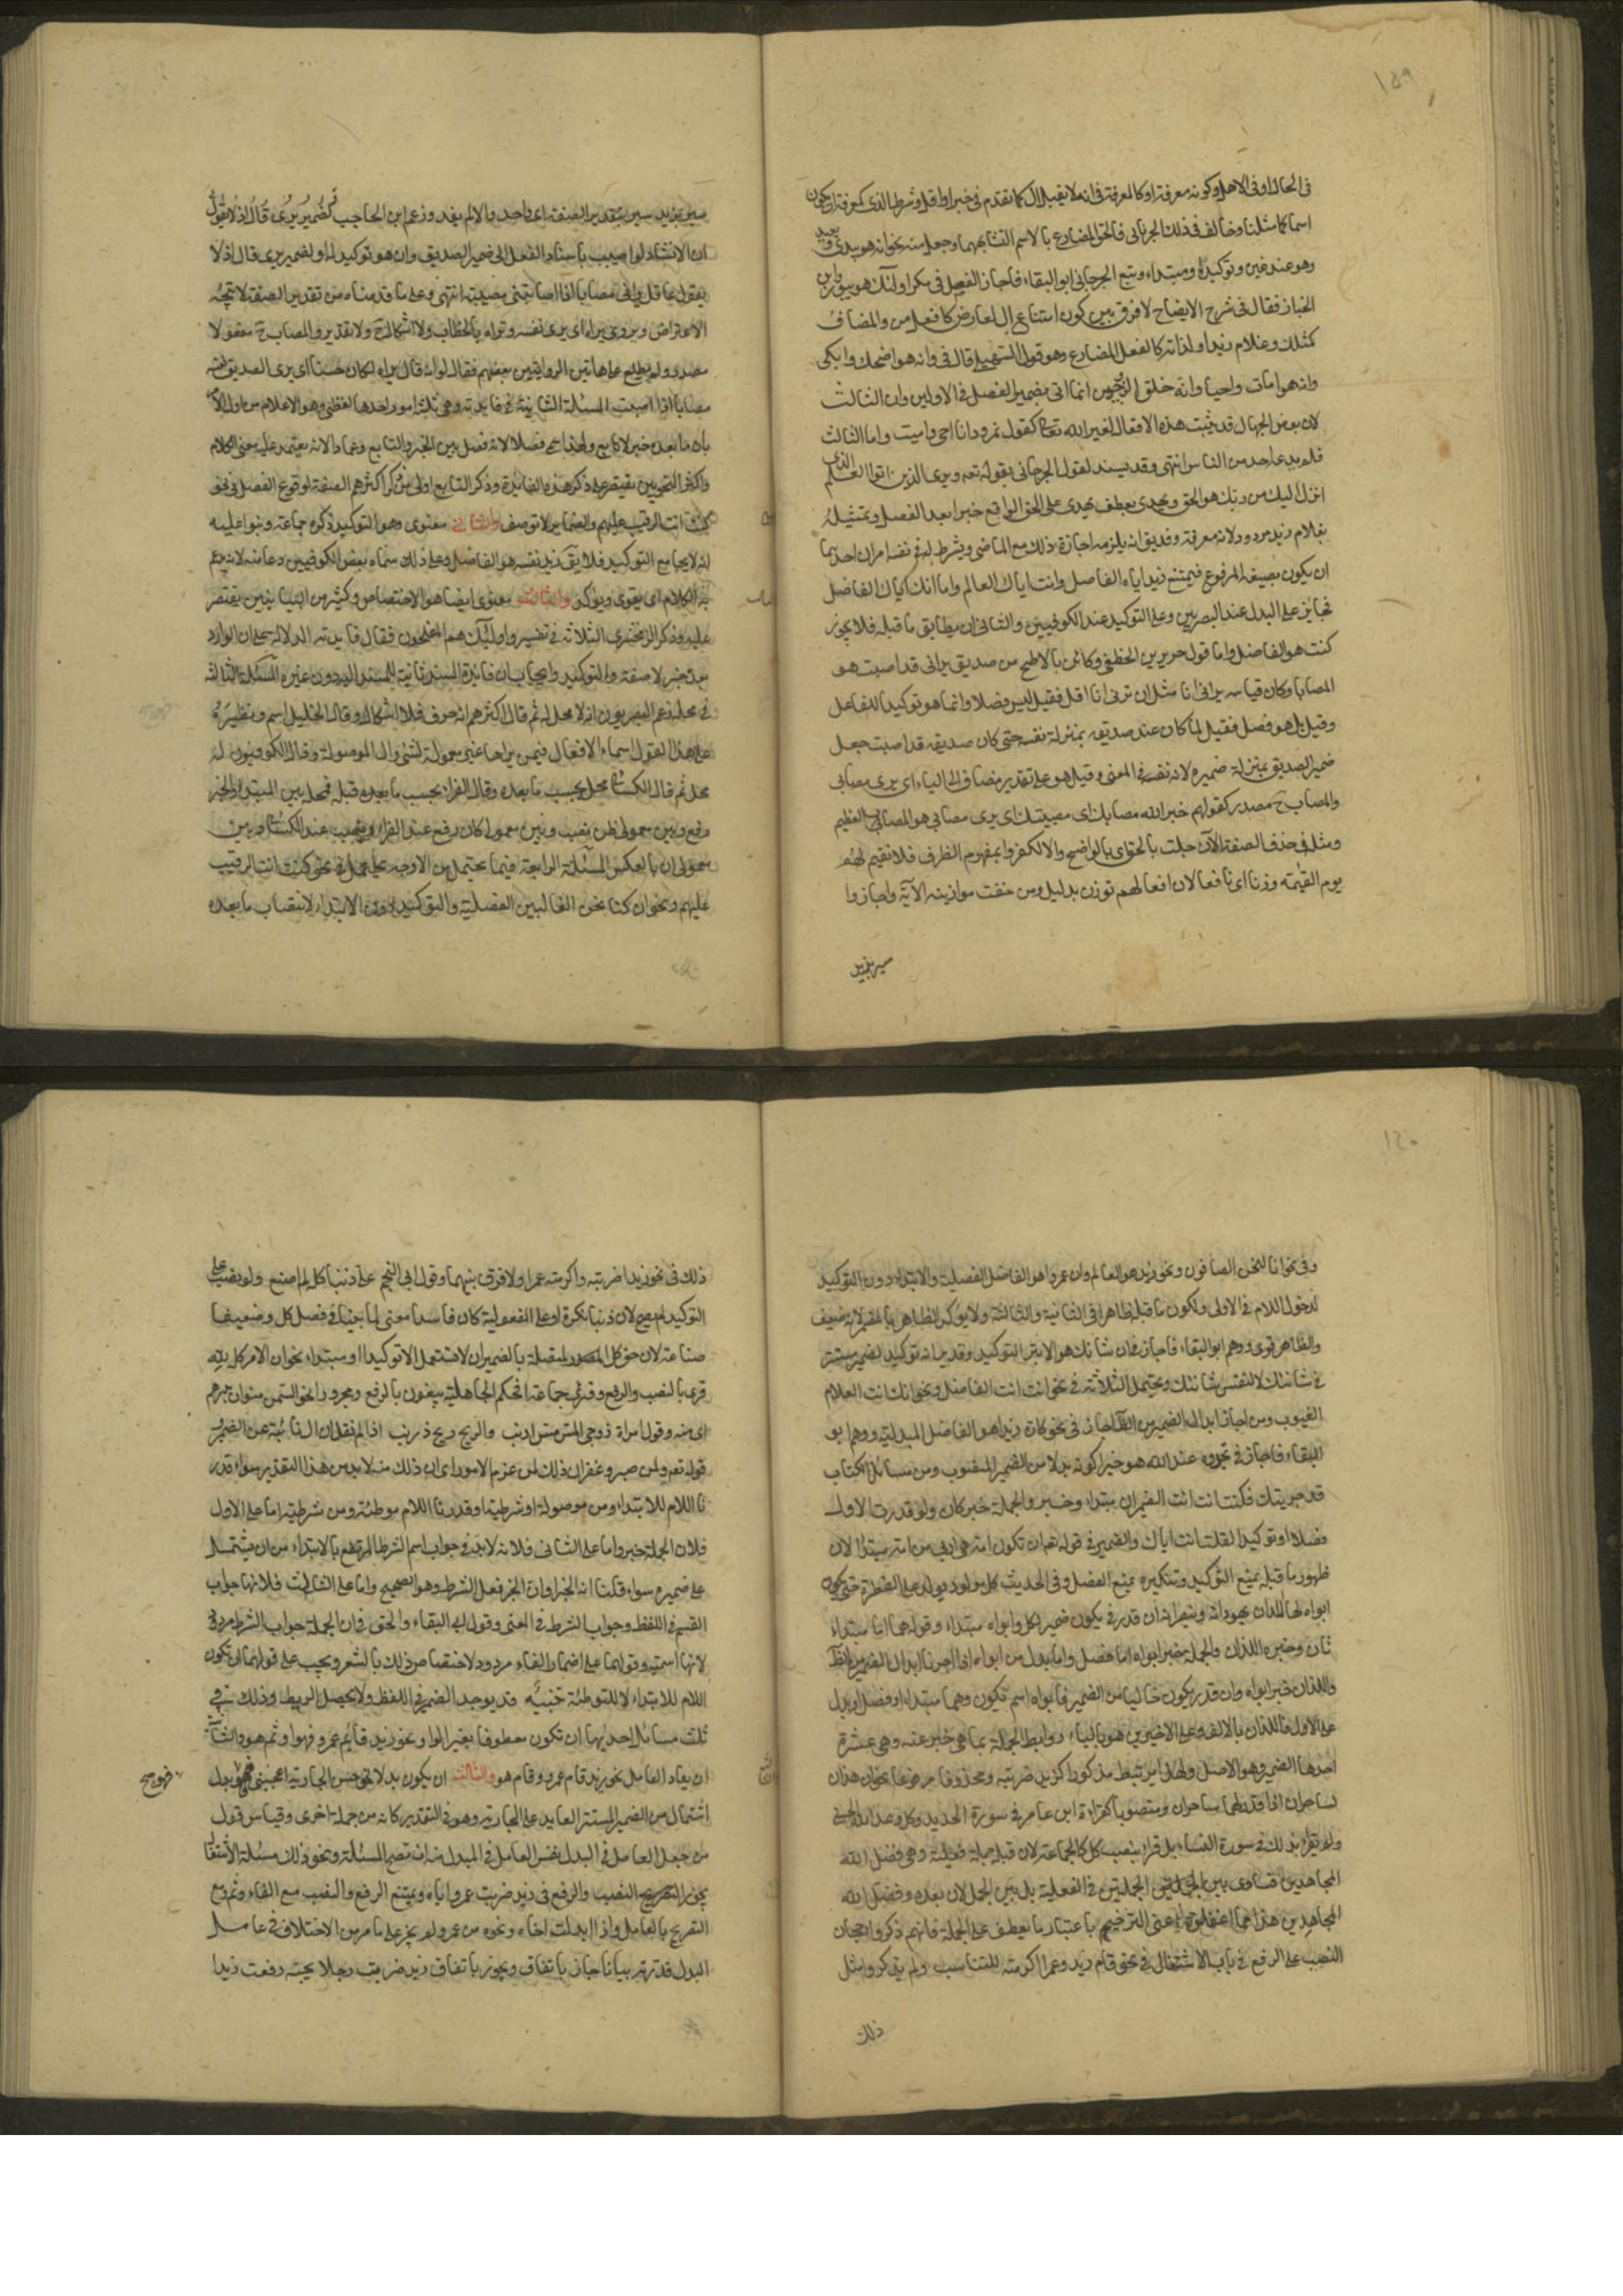 ١٥٩
فى الحال او فى الاصل وكونه معرفة او كالمعرفة فى انه لا يقبل ال كما تقدم فى خبرا واقل وشرط الذى كمعرفة ان يكون
اسما كما مثلنا وخالف فى ذلك الجرجانى فالحق المضارع بالاسم لتشابههما وجعل منه نحو انه هو يبدئ ويعيد
وهو عند غيره توكيد او مبتداء وتبع الجرجانى ابو البقاء فاجاز الفصل فى مكر اولئك هو يبور وابن
الخباز فقال فى شرح الايضاح لا فرق بين كون امتناع ال لعارض كافعل من والمضاف
كمثلك وغلام زيد او لذاته كالفعل المضارع وهو قول السهيلى قال فى وانه هو اضحك وابكى
وانه هو امات واحيا وانه خلق الزوجين انما اتى بضمير الفصل فى الاولين دون الثالث
لان بعض الجهال قد يثبت هذه الافعال لغير الله تعالى كقول نمرود انا احيى واميت واما الثالث
فلم يدعه احد من الناس انتهى وقد يستدل لقول الجرجانى بقوله تعه ويرى الذين اوتوا العلم الذى
انزل اليك من ربك هو الحق ويهدى بعطف يهدى على الحق الواقع خبرا بعد الفصل وتمثيله
بغلام زيد مردود لانه معرفة وفديق انه يلزمه اجازة ذلك مع الماضى ويشترط له فى نفسه امران احدهما
ان يكون بصيغة المرفوع فيمتنع زيد اياه الفاضل وانت اياك العالم واما انك اياك الفاضل
فجايز على البدل عند البصريين وعلى التوكيد عند الكوفيين والثانى ان يطابق ما قبله فلا يجوز
كنت هو الفاضل واما قول جرير بن الخطفى وكائن بالاباطح من صديق يرانى قد اصبت هو
المصابا وكان قياسه يرانى انا مثل ان ترنى انا اقل فقيل ليس فصلا وانما هو توكيد للفاعل
وقيل بل هو فصل فقيل لما كان عند صديقه بمنزلة نفسه حتى كان صديقه قد اصبت جعل
ضمير الصديق بمنزلة ضميره لانه نفسه فى المعنى وقيل هو على تقدير مضاف الى الياء اى يرى مصابى
والمصاب ح مصدر كقولهم خبر الله مصابك اى مصيبتك اى يرى مصابى هو المصاب العظيم
ومثله فى حذف الصفة الآن جئت بالحق اى بالواضح والا لكفروا بمفهوم الظرف فلا نقيم لهم
يوم القيمة وزنا اى نافعا لان اعمالهم توزن بدليل ومن خفت موازينه الآية واجازوا
سير بزيد
سير بزيد سير بتقدير الصفة اى واحد والا لم يفد وزعم ابن الحاجب ان الضمير يرى قال اذ لا يقول
ان الانشاد لو اصيب باسناد الفعل الى ضمير الصديق وان هو توكيد له او لضمير يرى قال اذ لا
يقول عاقل يرانى مصابا اذا اصابتنى مصيبة انتهى وعلى ما قدمناه من تقدير الصفة لا يتجه
الاعتراض ويروى يراه اى يرى نفسه وتراه بالخطاب ولا اشكال ح ولا تقدير والمصاب ح مفعولا
مصدر ولم يطلع على هاتين الروايتين بعضهم فقال لو انه قال يراه لكان حسنا اى يرى الصديق نفسه
مصابا اذا اصبت المسئلة الثانية فى فايدته وهى ثلثة امور احدها لفظى وهو الاعلام من اول الامر
بان ما بعده خبر لا تابع ولهذا سمى فصلا لانه فصل بين الخبر والتابع وعمادا لانه يعتمد عليه معنى الكلام
واكثر النحويين يقتصر على ذكر هذه الفائدة وذكر التابع اولى من ذكر اكثرهم الصفة لوقوع الفصل فى نحو
كنت انت الرقيب عليهم والضماير لا توصف والثانى معنوى وهو التوكيد ذكره جماعة وبنوا عليه
انه لا يجامع التوكيد فلا يق زيد نفسه هو الفاضل وعلى ذلك سماه بعض الكوفيين دعامة لانه يدعم
به الكلام اى يقوى ويؤكد والثالث معنوى ايضا هو الاختصاص وكثير من البيانيين يقتصر
عليه وذكر الزمخشرى الثلاثة فى تفسير واولئك هم المفلحون فقال فايدته الدلالة على ان الوارد
بعده خبر لا صفة والتوكيد وايجاب ان فائدة المسند ثابتة للمسند اليه دون غيره المسئلة الثالثة
فى محله زعم البصريون انه لا محل له ثم قال اكثرهم انه حرف فلا اشكال وقال الخليل اسم ونظيره
على هذا القول اسماء الافعال فيمن يراها غير معمولة لشئ وال الموصولة وقال الكوفيون له
محل ثم قال الكسائى محله بحسب ما بعده وقال الفراء بحسب ما قبله فمحله بين المبتدا والخبر
رفع وبين معمولى ظن نصب وبين معمولى كان رفع عند الفراء ونصب عند الكسائى وبين
معمولى ان بالعكس المسئلة الرابعة فيما يحتمل من الاوجه يحتمل فى نحو كنت انت الرقيب
عليهم ونحو ان كنا نحن الغالبين الفصلية والتوكيد دون الابتداء لانتصاب ما بعده
١٦٠
وفى نحو انا لنحن الصافون ونحو زيد هو العالم وان عمروا هو الفاضل الفصلية والابتداء دون التوكيد
لدخول اللام فى الاولى ولكون ما قبله ظاهرا فى الثانية والثالثة ولا يؤكد الظاهر بالمضمر لانه ضعيف
والظاهر قوى ووهم ابو البقاء فاجاز فى ان شانئك هو الابتر التوكيد وقد يريد انه توكيد لضمير مستتر
فى شانئك لا لنفس شانئك ويحتمل الثلاثة فى نحو انت انت الفاضل ونحو انك انت العلام
الغيوب ومن اجاز ابدال الضمير من الظاهر اجاز فى نحو كان زيدا هو الفاضل البدلية ووهم ابو
البقاء فاجاز فى تجدوه عند الله هو خيرا كونه بدلا من الضمير المنصوب ومن مسائل الكتاب
قد جربتك فكنت انت انت الضميران مبتداء وخبر والجملة خبر كان ولو قدرت الاول
فصلا او توكيدا لقلت انت اياك والضمير فى قوله تعه ان تكون امة هى اربى من امة مبتدا لان
ظهور ما قبله يمنع التوكيد وتنكيره يمنع الفصل وفى الحديث كل مولود يولد على الفطرة حتى يكون
ابواه هما اللذان يهودانه وينصرانه ان قدر فى يكون ضمير لكل وابواه مبتداء وقوله هما اما مبتداء
ثان وخبره اللذان والجملة خبر ابواه اما فصل واما بدل من ابواه اذا اجزنا ابدال الضمير من الظ
واللذان خبر ابواه وان قدر يكون خاليا من الضمير فابواه اسم تكون وهما مبتداء او فصل او بدل
على الاول فاللذان بالالف وعلى الاخيرين هو بالياء روابط الجملة بما هى خبر عنه وهى عشرة
احدها الضمير وهو الاصل ولهذا يربط مذكورا كزيد ضربته ومحذوفا مرفوعا نحو ان هذان
لساحران اذا قدر لهما ساحران ومنصوبا كقراءة ابن عامر فى سورة الحديد وكل وعد الله الحسنى
ولم يقرا بذلك فى سورة النساء بل قرا بنصب كل كالجماعة لان قبله جملة فعلية وهى فضل الله
المجاهدين فتساوى بين الجملتين فى الفعلية بل بين الجمل لان بعده وفضل الله
المجاهدين هذا مما اغفلوه اعنى الترجيح باعتبار ما يعطف على الجملة فانهم ذكروا رجحان
النصب على الرفع فى باب الاشتغال فى نحو قام زيد وعمرا اكرمته للتناسب ولم يذكروا مثل
ذلك
ذلك فى نحو زيدا ضربته واكرمته عمرا ولا فرق بينهما وقول ابى النجم على ذنبا كله لم اصنع ولو نصب على
التوكيد لم يصح لان ذنبا نكرة او على المفعولية كان فاسدا معنى لما بينا فى فصل كل وضعيفا
صناعة لان حق كل المتصلة بالضمير ان لا تستعمل الا توكيدا او مبتداء نحو ان الامر كله لله
قرى بالنصب والرفع وقرئ جماعة افحكم الجاهلية يبغون بالرفع ومجرورا نحو السمن منوان بدرهم
اى منه وقول امراة زوجى المس مس ارنب والريح ريح زرنب اذا لم نقل ان ال نائبة عن الضمير
قوله تعه ولمن صبر وغفر ان ذلك لمن عزم الامور اى ان ذلك منه لا بد من هذا التقدير سواء قدر
نا اللام للابتداء ومن موصولة او شرطية او قدرنا اللام موطئة ومن شرطية اما على الاول
فلان الجملة خبر واما على الثانى فلانه لا بد فى جواب اسم الشرط المرتفع بالابتداء من ان يشتمل
على ضميره سواء قلنا انه الخبر او ان الخبر فعل الشرط وهو الصحيح واما على الثالث فلانها جواب
القسم فى اللفظ وجواب الشرط فى المعنى وقول ابى البقاء والحق فى ان الجملة جواب الشرط مردود
لانها اسمية وقولهما على اضمار الفاء مردود لاختصاص ذلك بالشعر ويجب على قولهما ان تكون
اللام للابتداء لا للتوطئة تنبيه قد يوجد الضمير فى اللفظ ولا يحصل الربط وذلك فى
ثلث مسائل احديها ان تكون معطوفا بغير الواو نحو زيد قايم عمرو فهو او ثم هو والثانية
ان يعاد العامل نحو زيد قام عمرو وقام هو والثالثة ان يكون بدلا نحو حسن الجارية اعجبتنى هو فهو بدل
فهو صح
اشتمال من الضمير المستتر العايد على الجارية وهو فى التقدير كانه من جملة اخرى وقياس قول
من جعل العامل فى البدل نفس العامل فى المبدل منه ان تصح المسئلة ونحو ذلك مسئلة الاشتغال
يجوز النصب والرفع فى زيد ضربت عمروا اباه ويمتنع الرفع والنصب مع الفاء وثم ومع
التصريح بالعامل واذا ابدلت اخاه ونحوه من عمرو لم يجز على ما مر من الاختلاف فى عامل
البدل فقدرته بيانا جاز باتفاق ويجوز باتفاق زيد ضربت رجلا يحبه رفعت زيدا